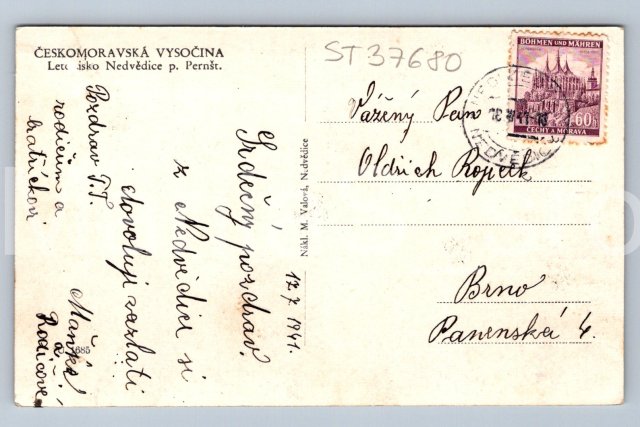 ČESKOMORAVSKÁ VYSOČINA
Letovisko Nedvědice p. Pernšt.
ST 37680
BÖHMEN UND MÄHREN
60h
ČECHY A MORAVA
Vážený Pan
Oldřich
Brno
Panenská 4.
Nákl. M. Valová, Nedvědice
12.7 1941.
Srdečný pozdrav
z Nedvědic si
dovolují zaslati
Mařka
a
Rodičové
Pozdrav T.T.
rodičům a
bratříčkovi
1685